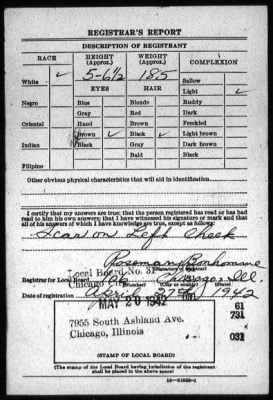 REGISTRAR'S REPORT
DESCRIPTION OF REGISTRANT
RACE HEIGHT (Approx.) WEIGHT (Approx.) COMPLEXION
White ✓ 5-6½ 185 Sallow
EYES HAIR Light ✓
Negro Blue Blonde Ruddy
Gray Red Dark
Oriental Hazel Brown Freckled
Brown ✓ Black ✓ Light brown
Indian Black Gray Dark brown
Bald Black
Filipino
Other obvious physical characteristics that will aid in identification
I certify that my answers are true; that the person registered has read or has had
read to him his own answers; that I have witnessed his signature or mark and that
all of his answers of which I have knowledge are true, except as follows:
Scar on Left Cheek
Rosemary Bonhomme
Registrar for Local Board Chicago, Ill.
(City or county) (State)
Date of registration April 27th, 1942
Local Board No. 31
Chicago City
MAY 20 1942
61
731
031
7955 South Ashland Ave.
Chicago, Illinois
(STAMP OF LOCAL BOARD)
(The stamp of the Local Board having jurisdiction of the registrant
shall be placed in the above space)